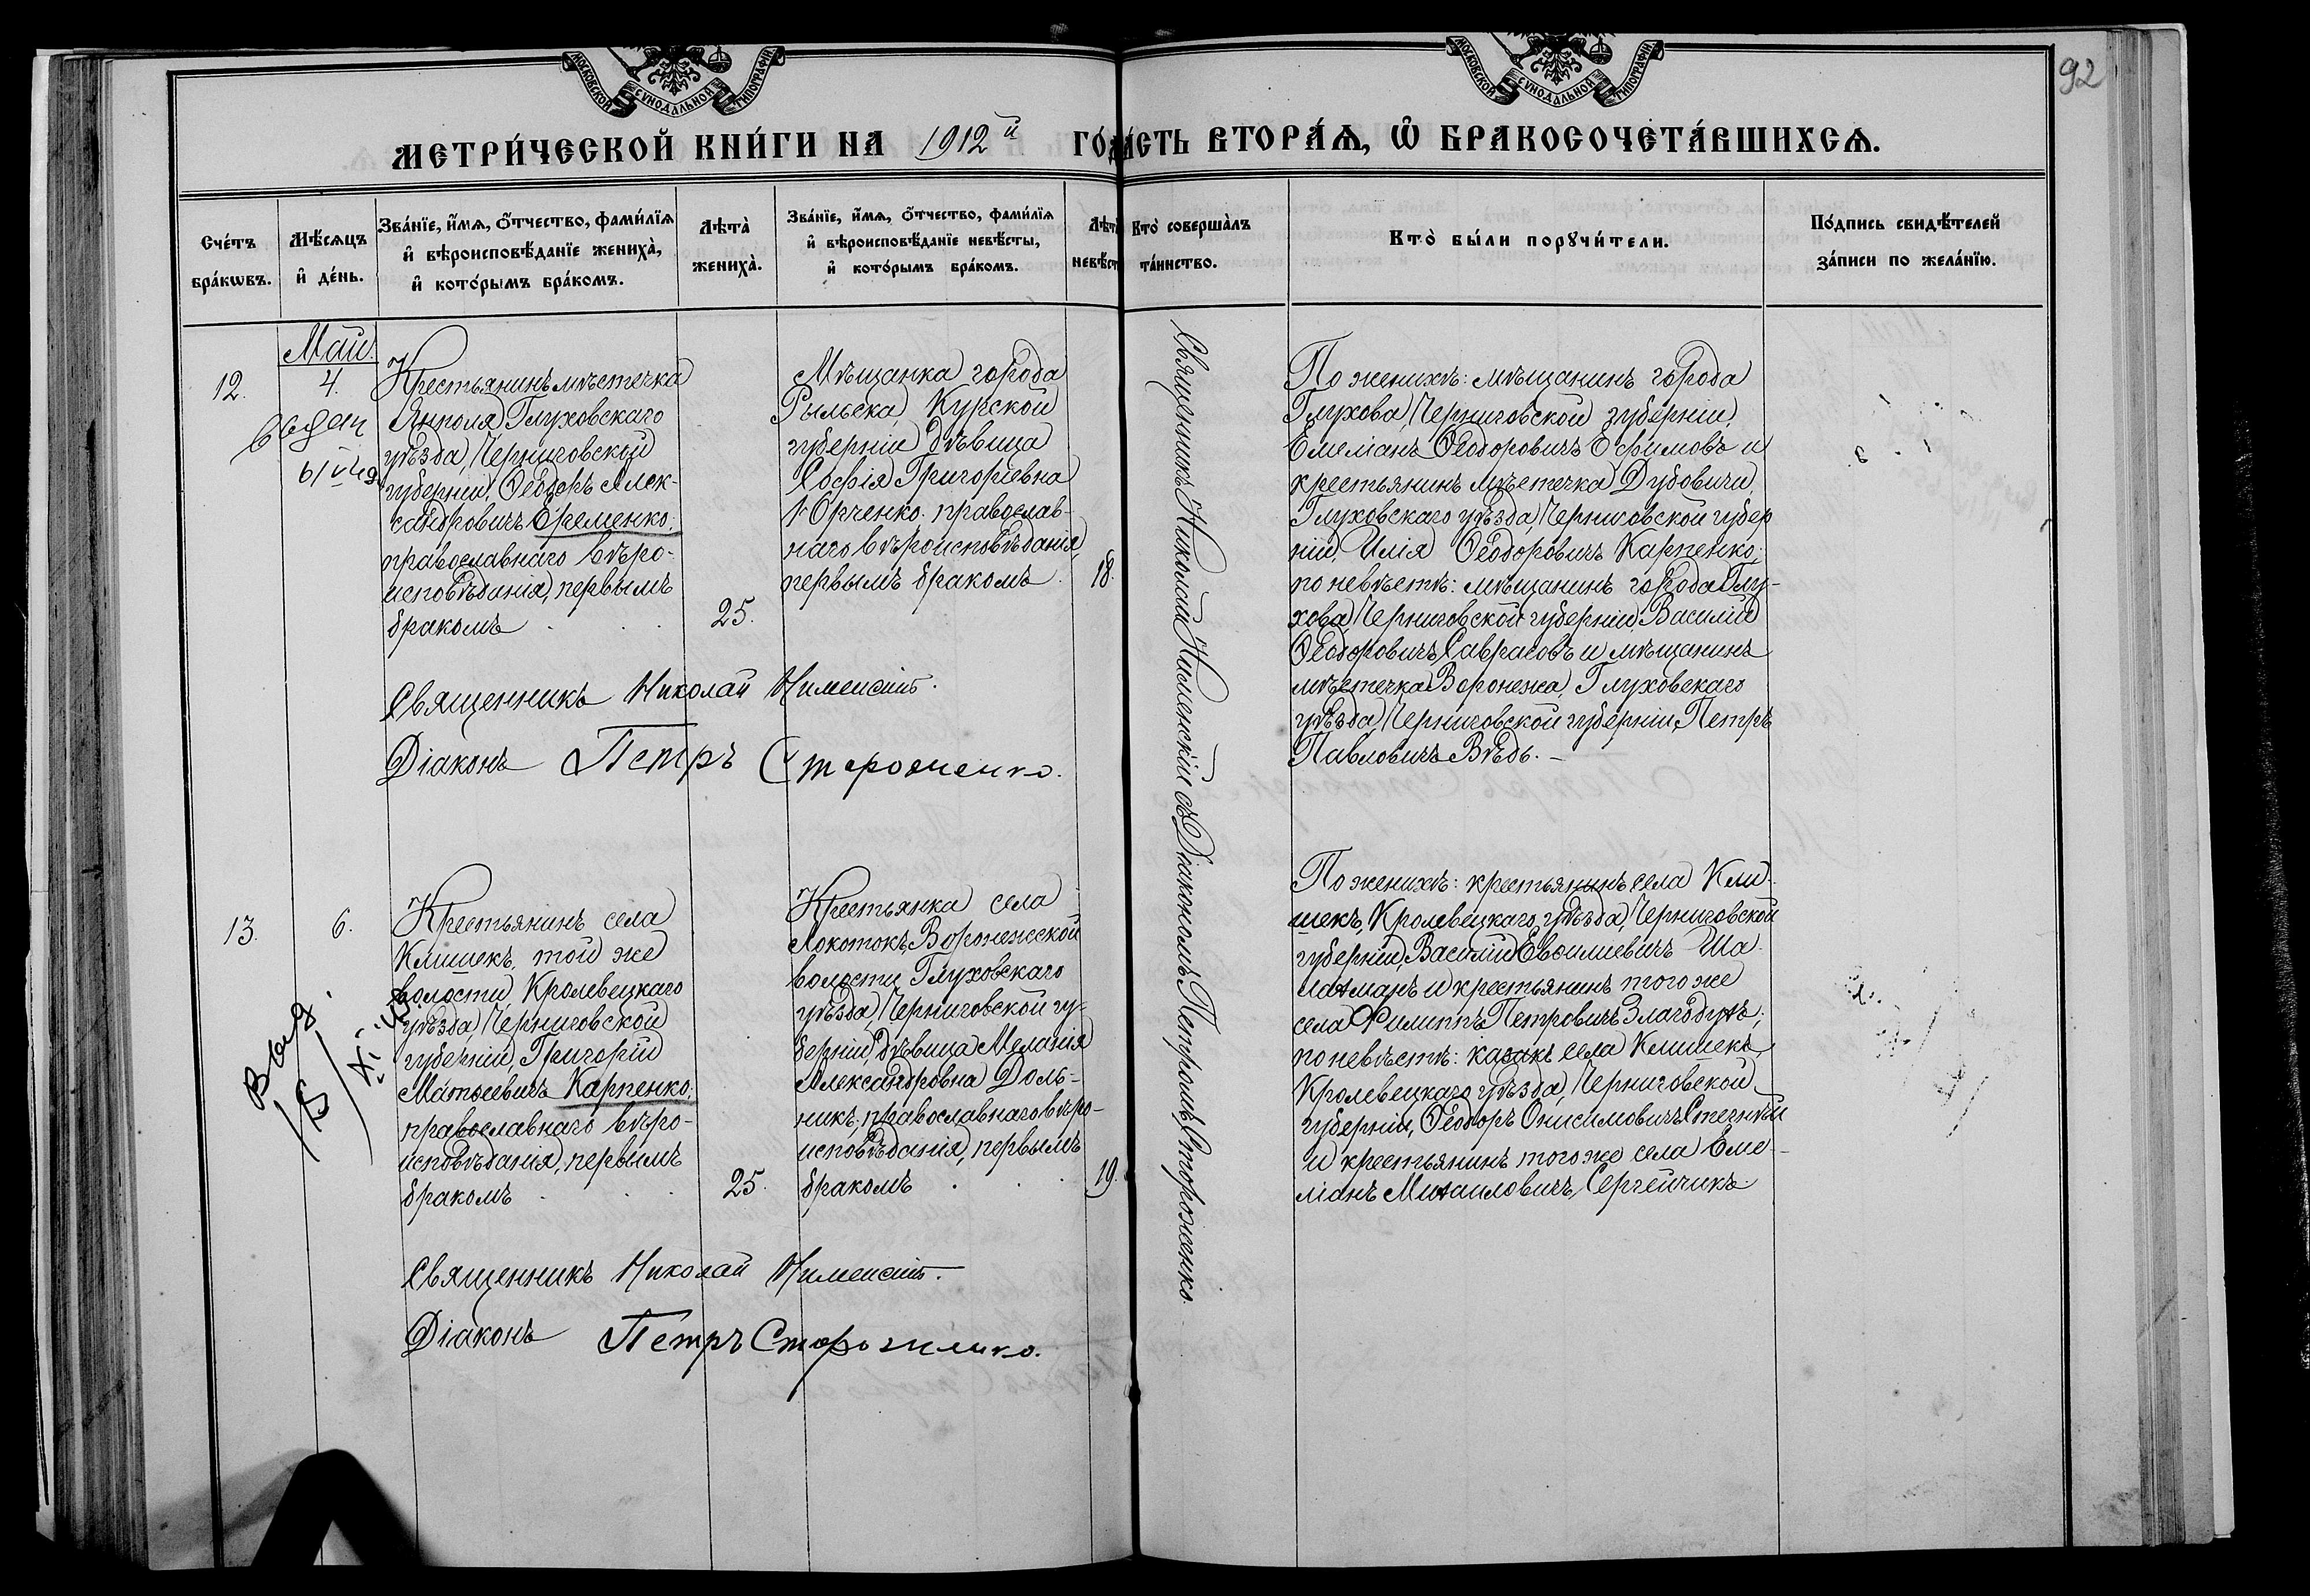 92
МОСКОВСКОЙ СѴНОДАЛЬНОЙ ТИПОГРАФІИ
МОСКОВСКОЙ СѴНОДАЛЬНОЙ ТИПОГРАФІИ
МЕТРИ́ЧЕСКОЙ КНИ́ГИ НА 1912й ГО́ДА
ЧА́СТЬ ВТОРА́Ѧ, Ѡ҆ БРАКОСОЧЕТА́ВШИХСѦ.
Сче́тъ бра́кѡвъ.
Мѣ́сѧцъ и҆ де́нь.
Зва́нїе, и҆́мѧ, ѻ҆́тчество, фами́лїѧ
и҆ вѣроисповѣ́данїе жениха̀,
и҆ кото́рымъ бра́комъ.
Лѣта̀ жениха̀.
Зва́нїе, и҆́мѧ, ѻ҆́тчество, фами́лїѧ
и҆ вѣроисповѣ́данїе невѣ́сты,
и҆ кото́рымъ бра́комъ.
Лѣта̀ невѣст
Кто̀ соверша̀лъ та́инство.
Кто̀ бы́ли порꙋчи́тели.
По́дпись свидѣ́телей
за́писи по жела́нїю.
Май.
12.
4.
Крестьянинъ мѣстечка
Янполя, Глуховскаго
уѣзда, Черниговской
губерніи, Ѳеодоръ Алек-
сандровичъ Еременко;
православнаго вѣро-
исповѣданія, первымъ
бракомъ
25.
Мѣщанка города
Рыльска, Курской
губерніи дѣвица
Софія Григоріевна
Юрченко, православ-
наго вѣроисповѣданія,
первымъ бракомъ
18.
Священникъ Николай Нименскій съ Діакономъ Петромъ Стороженко.
По женихѣ: мѣщанинъ города
Глухова, Черниговской губерніи,
Емеліанъ Ѳеодоровичъ Ефимовъ и
крестьянинъ мѣстечка Дубовичи,
Глуховскаго уѣзда, Черниговской губер
ніи, Илія Ѳеодоровичъ Карпенко;
по невѣстѣ: мѣщанинъ города Глу-
хова, Черниговской губерніи, Василій
Ѳеодоровичъ Саврасовъ и мѣщанинъ
мѣстечка Воронежа, Глуховскаго
уѣзда, Черниговской губерніи, Петръ
Павловичъ Вѣдь. –
Священникъ Николай Нименскій.
Діаконъ Петръ Стороженко.
13.
6.
Крестьянинъ села
Клишекъ, той же
волости, Кролевецкаго
уѣзда, Черниговской
губерніи, Григорій
Матѳеевичъ Карпенко;
православнаго вѣро-
исповѣданія, первымъ
бракомъ
25.
Крестьянка села
Локотокъ, Воронежской
волости, Глуховскаго
уѣзда, Черниговской гу-
берніи, дѣвица Меланія
Александровна Доль-
никъ; православнаго вѣро-
исповѣданія, первымъ
бракомъ
19.
По женихѣ: крестьянинъ села Кли-
шекъ, Кролевецкаго уѣзда, Черниговской
губерніи, Василій Ша-
латманъ и крестьянинъ того же
села Филиппъ Петровичъ
по невѣстѣ: казакъ села Клишекъ,
Кролевецкаго уѣзда, Черниговской
губерніи, Ѳеодоръ Онисимовичъ
и крестьянинъ того же села Еме-
ліанъ Михаиловичъ Сергейчикъ.
Священникъ Николай Нименскій.
Діаконъ Петръ Стороженко.